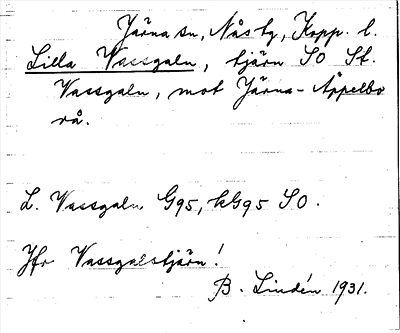 Järna sn, Nås tg, Kopp. l.
Lilla Vassgaln, tjärn SO St.
Vassgaln, mot Järna-Äppelbo
rå.
L. Vassgaln G95, kG95 SO.
Jfr Vassgalstjärn!
B. Lindén 1931.